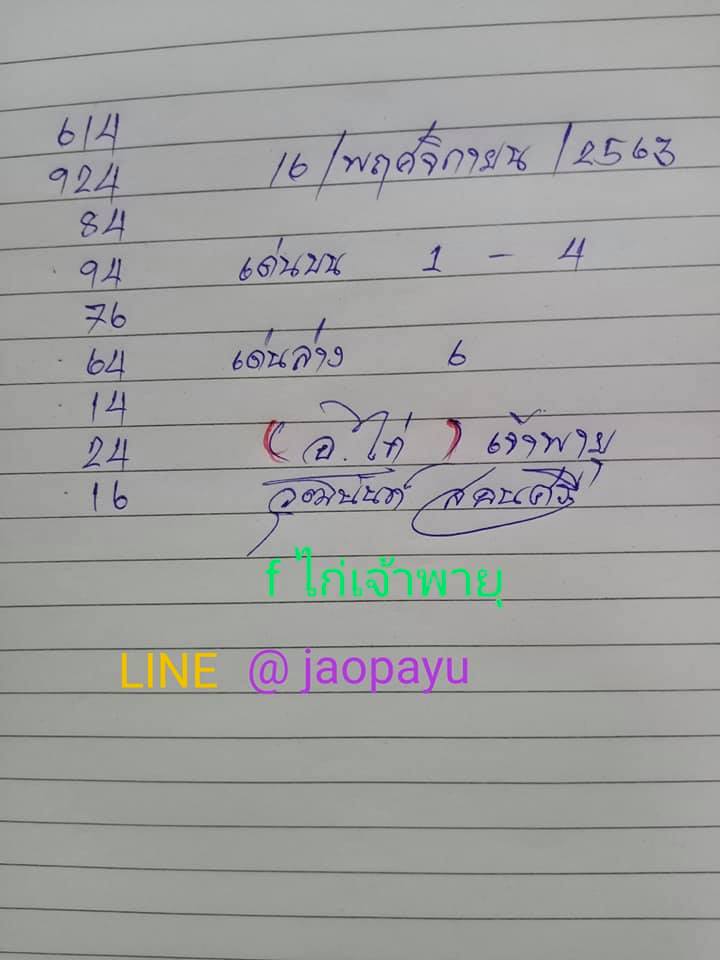 614
924
84
94
76
64
14
24
16
16 / พฤศจิกายน / 2563
เด่นบน 1 - 4
เด่นล่าง 6
( อ. ไก่ ) เจ้าพายุ
วุฒินันท์
f ไก่เจ้าพายุ
LINE @ jaopayu